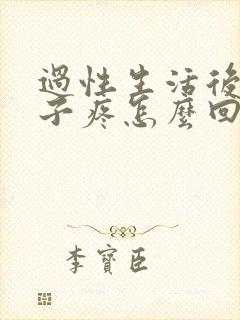 過性生活後
子疼怎麼回
李寶臣